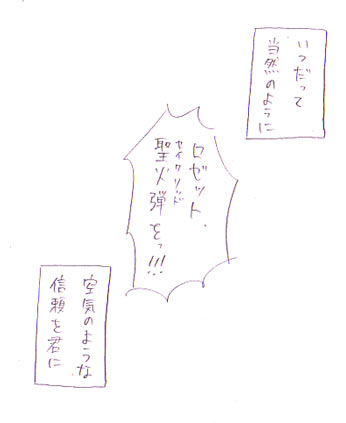 いつだって
当然のように
ロゼット、
セイクリッド
聖火弾をっ!!!
空気のような
信頼を君に